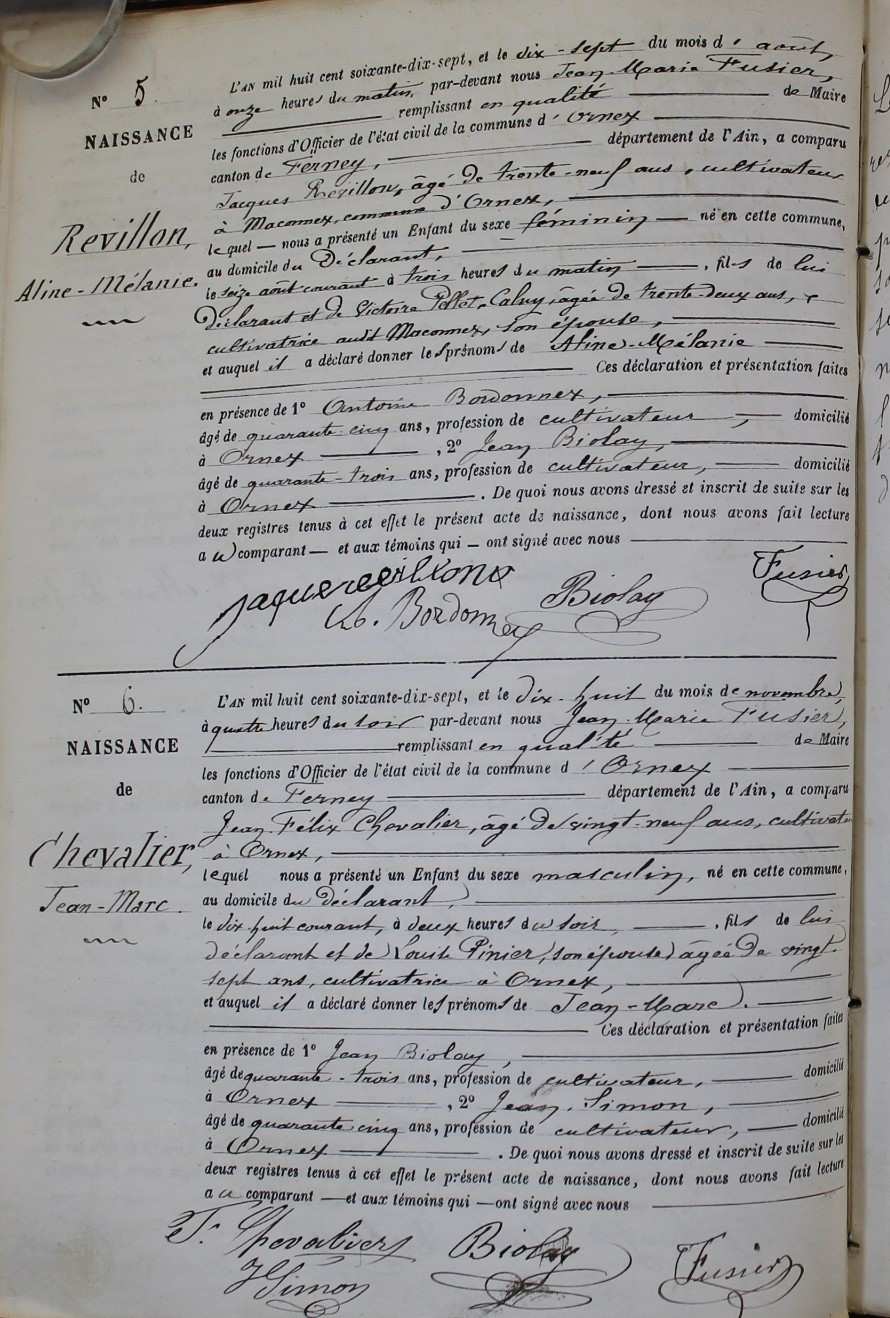 N° 5.
NAISSANCE
de
Revillon,
Aline-Mélanie.
L'AN mil huit cent soixante-dix-sept, et le dix-sept du mois d'août,
à onze heures du matin, par-devant nous Jean Marie Fusier,
remplissant en qualité de Maire
les fonctions d'Officier de l'état civil de la commune d'Ornex
canton de Ferney, département de l'Ain, a comparu
Jacques Revillon, âgé de trente-neuf ans, cultivateur
à Maconnex, commune d'Ornex,
lequel nous a présenté un Enfant du sexe féminin né en cette commune,
au domicile du Déclarant,
le seize août courant à trois heures du matin, fils de lui
Déclarant et de Victoire Pellet, âgée de trente-deux ans,
cultivatrice audit Maconnex, son épouse,
et auquel il a déclaré donner les prénoms de Aline-Mélanie
Ces déclaration et présentation faites
en présence de 1° Antoine Bordonnex,
âgé de quarante cinq ans, profession de cultivateur, domicilié
à Ornex, 2° Jean Biolay,
âgé de quarante-trois ans, profession de cultivateur, domicilié
à Ornex. De quoi nous avons dressé et inscrit de suite sur les
deux registres tenus à cet effet le présent acte de naissance, dont nous avons fait lecture
au comparant et aux témoins qui ont signé avec nous
Fusier
Biolay
Bordonnex
N° 6.
NAISSANCE
de
Chevalier,
Jean-Marc.
L'AN mil huit cent soixante-dix-sept, et le dix-huit du mois de novembre,
à quatre heures du soir par-devant nous Jean-Marie Fusier,
remplissant en qualité de Maire
les fonctions d'Officier de l'état civil de la commune d'Ornex
canton de Ferney département de l'Ain, a comparu
Jean Félix Chevalier, âgé de vingt-neuf ans, cultivateur
à Ornex,
lequel nous a présenté un Enfant du sexe masculin, né en cette commune,
au domicile du déclarant,
le dix huit courant, à deux heures du soir, fils de lui
déclarant et de Louise Pinier, son épouse, âgée de vingt-
sept ans, cultivatrice à Ornex,
et auquel il a déclaré donner les prénoms de Jean-Marc.
Ces déclaration et présentation faites
en présence de 1° Jean Biolay,
âgé de quarante-trois ans, profession de cultivateur, domicilié
à Ornex, 2° Jean Simon,
âgé de quarante cinq ans, profession de cultivateur, domicilié
à Ornex. De quoi nous avons dressé et inscrit de suite sur les
deux registres tenus à cet effet le présent acte de naissance, dont nous avons fait lecture
au comparant et aux témoins qui ont signé avec nous
F. Chevalier Biolay Fusier
J Simon